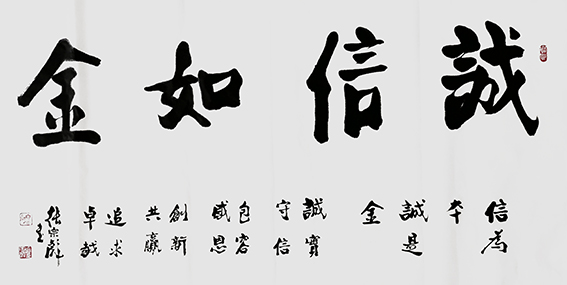 誠信如金
信為
本
誠是
金
誠實
守信
包容
感恩
創新
共贏
追求
卓越